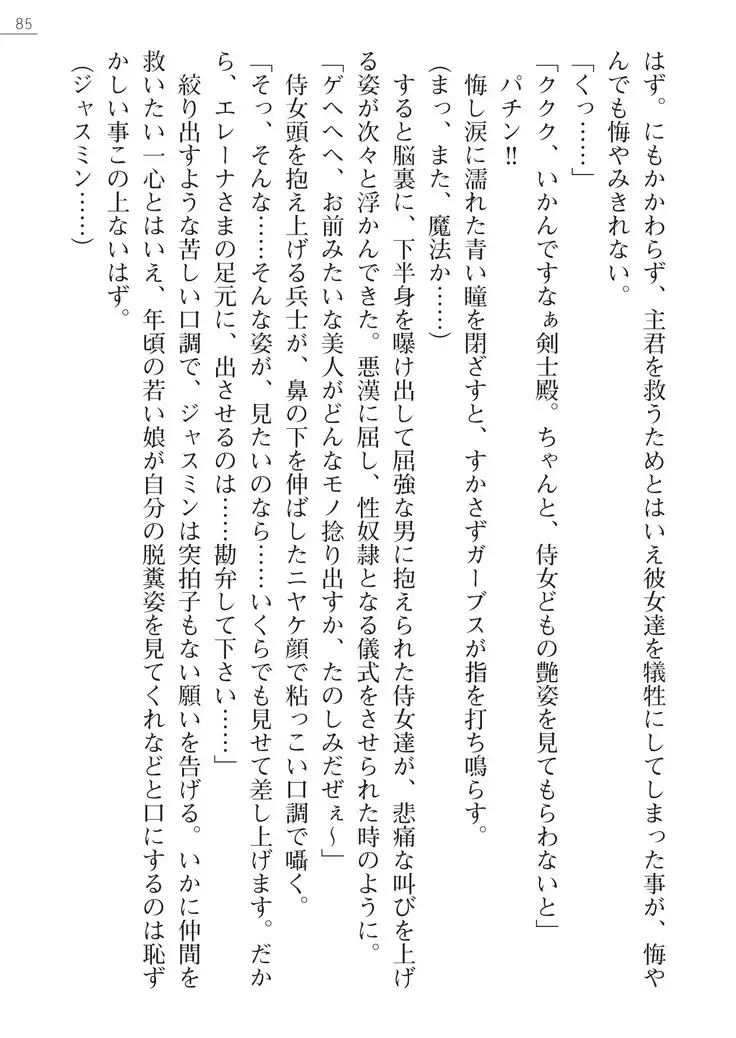 85
はず。にもかかわらず、主君を救うためとはいえ彼女達を犠牲にしてしまった事が、悔や
んでも悔やみきれない。
「くっ……」
「ククク、いかんですなぁ剣士殿。ちゃんと、侍女どもの艶姿を見てもらわないと」
パチン!!
悔し涙に濡れた青い瞳を閉ざすと、すかさずガーブスが指を打ち鳴らす。
(まっ、また、魔法か……)
すると脳裏に、下半身を曝け出して屈強な男に抱えられた侍女達が、悲痛な叫びを上げ
る姿が次々と浮かんできた。悪漢に屈し、性奴隷となる儀式をさせられた時のように。
「ゲヘヘへ、お前みたいな美人がどんなモノ捻り出すか、たのしみだぜぇ～」
侍女頭を抱え上げる兵士が、鼻の下を伸ばしたニヤケ顔で粘っこい口調で囁く。
「そっ、そんな……そんな姿が、見たいのなら……いくらでも見せて差し上げます。だか
ら、エレーナさまの足元に、出させるのは……勘弁して下さい……」
絞り出すような苦しい口調で、ジャスミンは突拍子もない願いを告げる。いかに仲間を
救いたい一心とはいえ、年頃の若い娘が自分の脱糞姿を見てくれなどと口にするのは恥ず
かしい事この上ないはず。
(ジャスミン……)